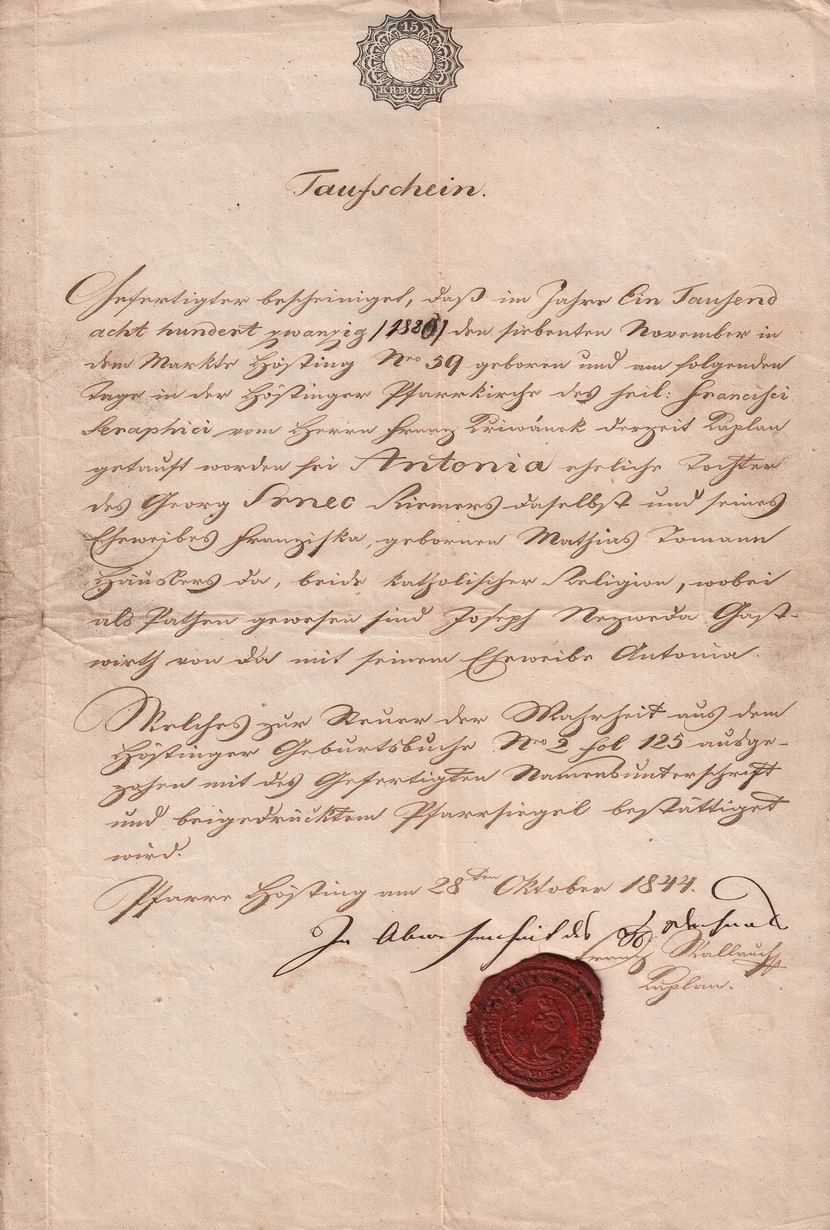 15
KREUZER
Taufschein.
Gefertigter bescheiniget, daß im Jahre Ein Tausend
acht hundert zwanzig /1820/ den siebenten November in
dem Markte Hösting Nro 59 geboren und am folgenden
Tage in der Höstinger Pfarrkirche des heil: Francisci
Seraphici vom Herrn Franz Kriwánek derzeit Kaplan
getauft worden sei Antonia eheliche Tochter
des Georg Srnec Riemers daselbst und seines
Eheweibes Franziska, gebornen Mathias Tomann
Häuslers da, beide katholischer Religion, wobei
als Pathen gewesen sind Joseph Nezweda Gast-
wirth von da mit seinem Eheweibe Antonia.
Welches zur Steuer der Wahrheit aus dem
Höstinger Geburtsbuche Nro 2 fol 125 ausge-
zohen mit des Gefertigten Namensunterschrift
und beigedrücktem Pfarrsiegel bestättiget
wird.
Pfarre Hösting am 28ten Oktober 1844.
In Abwesenheit des
Franz Wallauch
Kaplan.